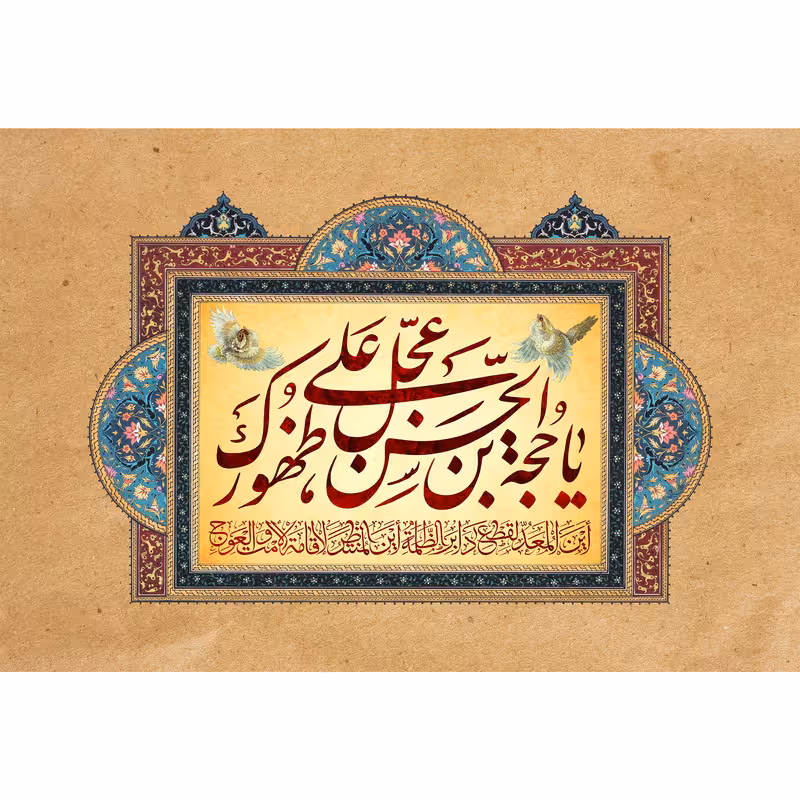 یا حجة بن الحسن عجل علی ظهورک
أین المعد لقطع دابر الظلمة أین المنتظر لإقامة الأمت و العوج